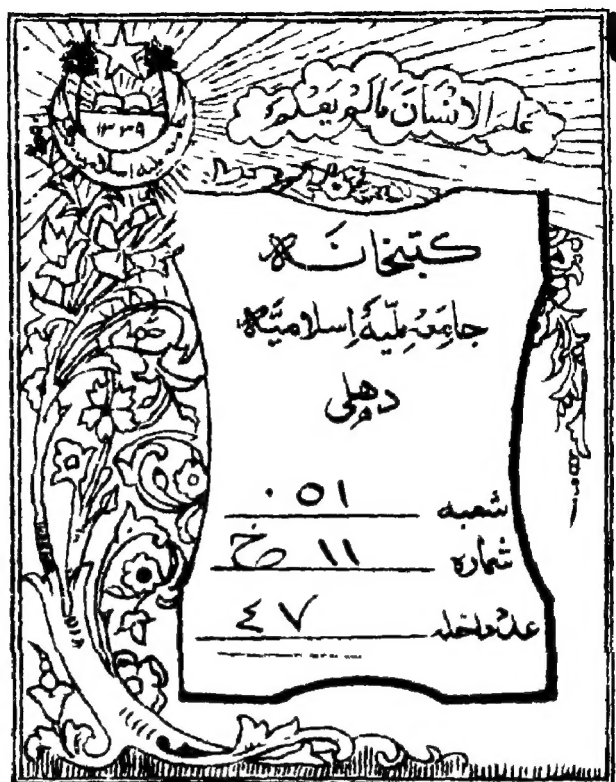 علم الانسان مالم يعلم
۱۳۳۹
کتبخانہ
جامعہ ملیہ اسلامیہ
دہلی
شعبہ ۰۵۱
شمارہ ۱۱ خ
عدد داخلہ ٤٧